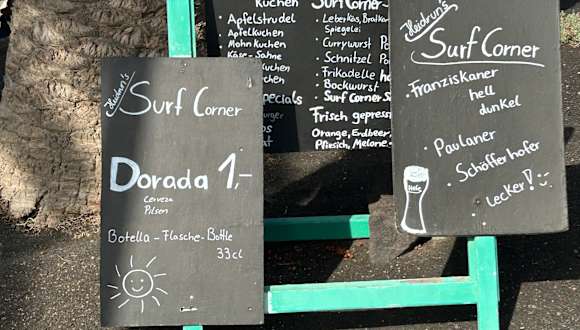 Heidrun's
Surf Corner
Dorada 1,-
Cerveza
Pilsen
Botella - Flasche - Bottle
33cl
Kuchen
• Apfelstrudel
Apfelkuchen
Mohnkuchen
Käse - Sahne
kuchen
specials
Surf Corner
• Leberkäs, Bratkar
Spiegelei
• Currywurst
• Schnitzel
• Frikadelle
• Bockwurst
Surf Corner
Frisch gepress
Orange, Erdbeer,
Pfirsich, Melone
Heidrun's
Surf Corner
• Franziskaner
hell
dunkel
• Paulaner
• Schöfferhofer
• Lecker!